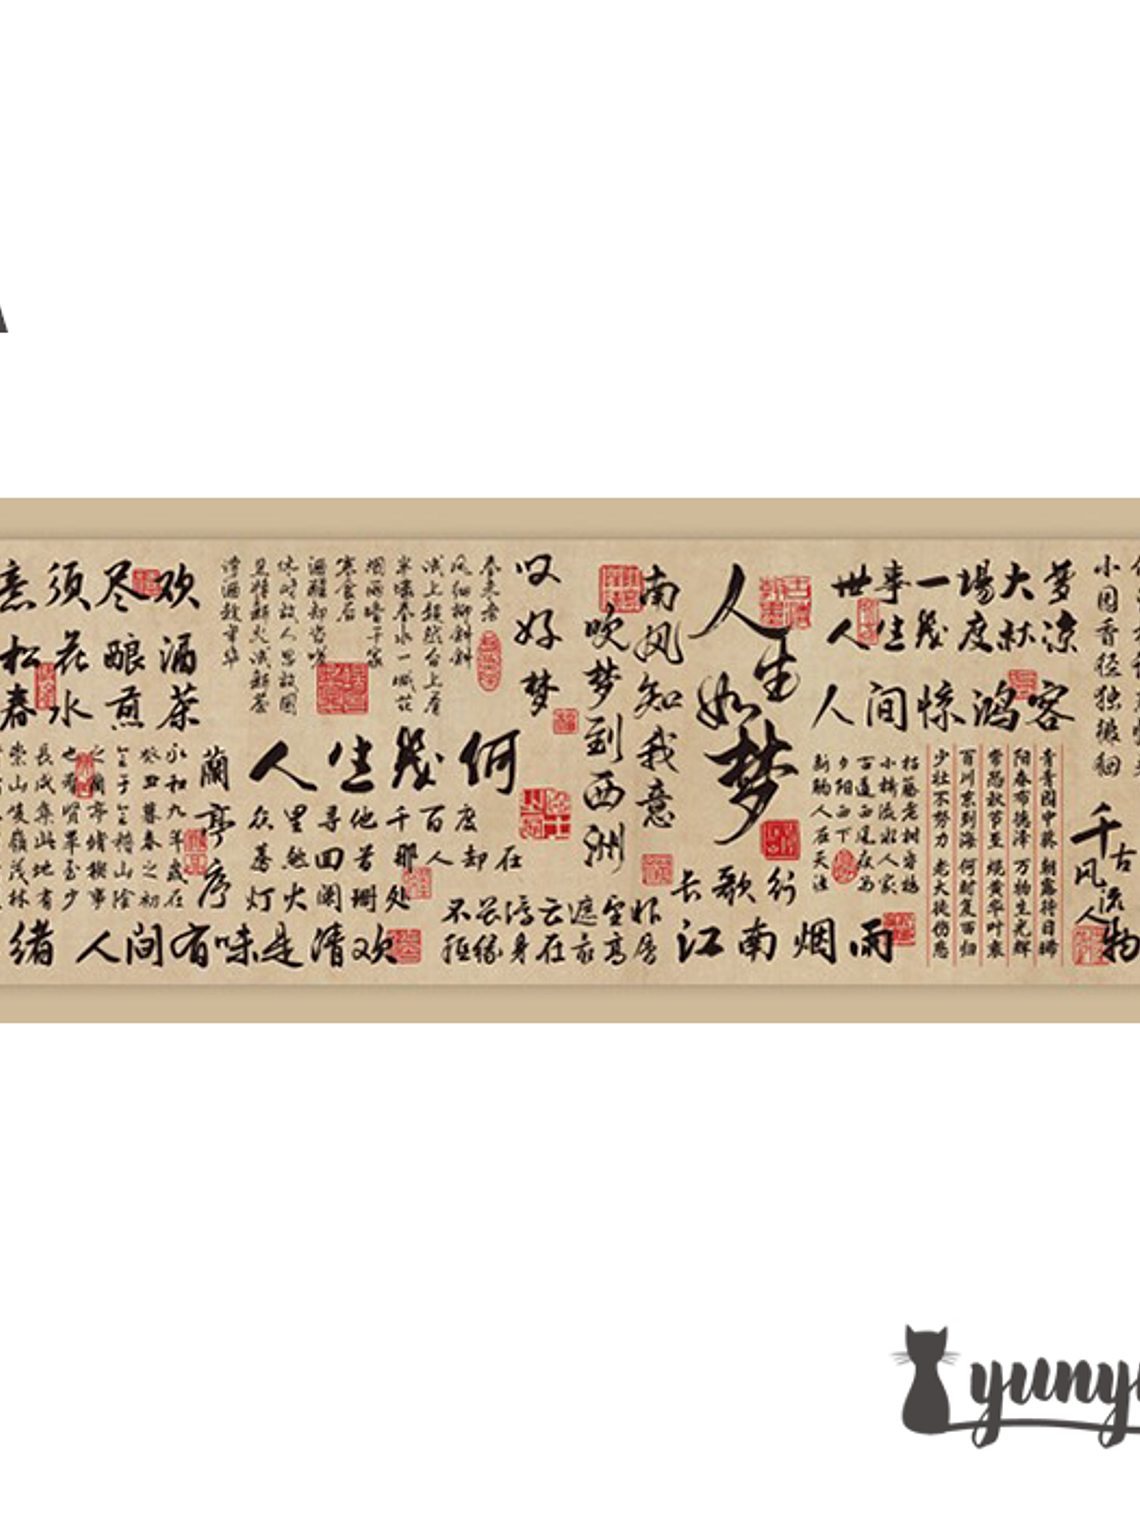 A
意须尽欢
松花酿酒
春水煎茶
春未老
风细柳斜斜
试上超然台上看
半壕春水一城花
烟雨暗千家
寒食后
酒醒却咨嗟
休对故人思故国
且将新火试新茶
诗酒趁年华
叹好梦
南风知我意
吹梦到西洲
人生如梦
世事一場大梦
人生几度秋凉
人间惊鸿客
小园香径独徘徊
人生几何
蘭亭序
永和九年歲在
癸丑暮春之初
于會稽山陰
之蘭亭脩禊事
也羣賢畢至少
長咸集此地有
崇山峻嶺茂林
众里寻他千百度
蓦然回首那人却在
灯火阑珊处
不畏浮云遮望眼
江南烟雨
长歌行
青青园中葵 朝露待日晞
阳春布德泽 万物生光辉
常恐秋节至 焜黄华叶衰
百川东到海 何时复西归
少壮不努力 老大徒伤悲
枯藤老树昏鸦
小桥流水人家
古道西风瘦马
夕阳西下
断肠人在天涯
千古风流人物
绪
人间有味是清欢
yuny